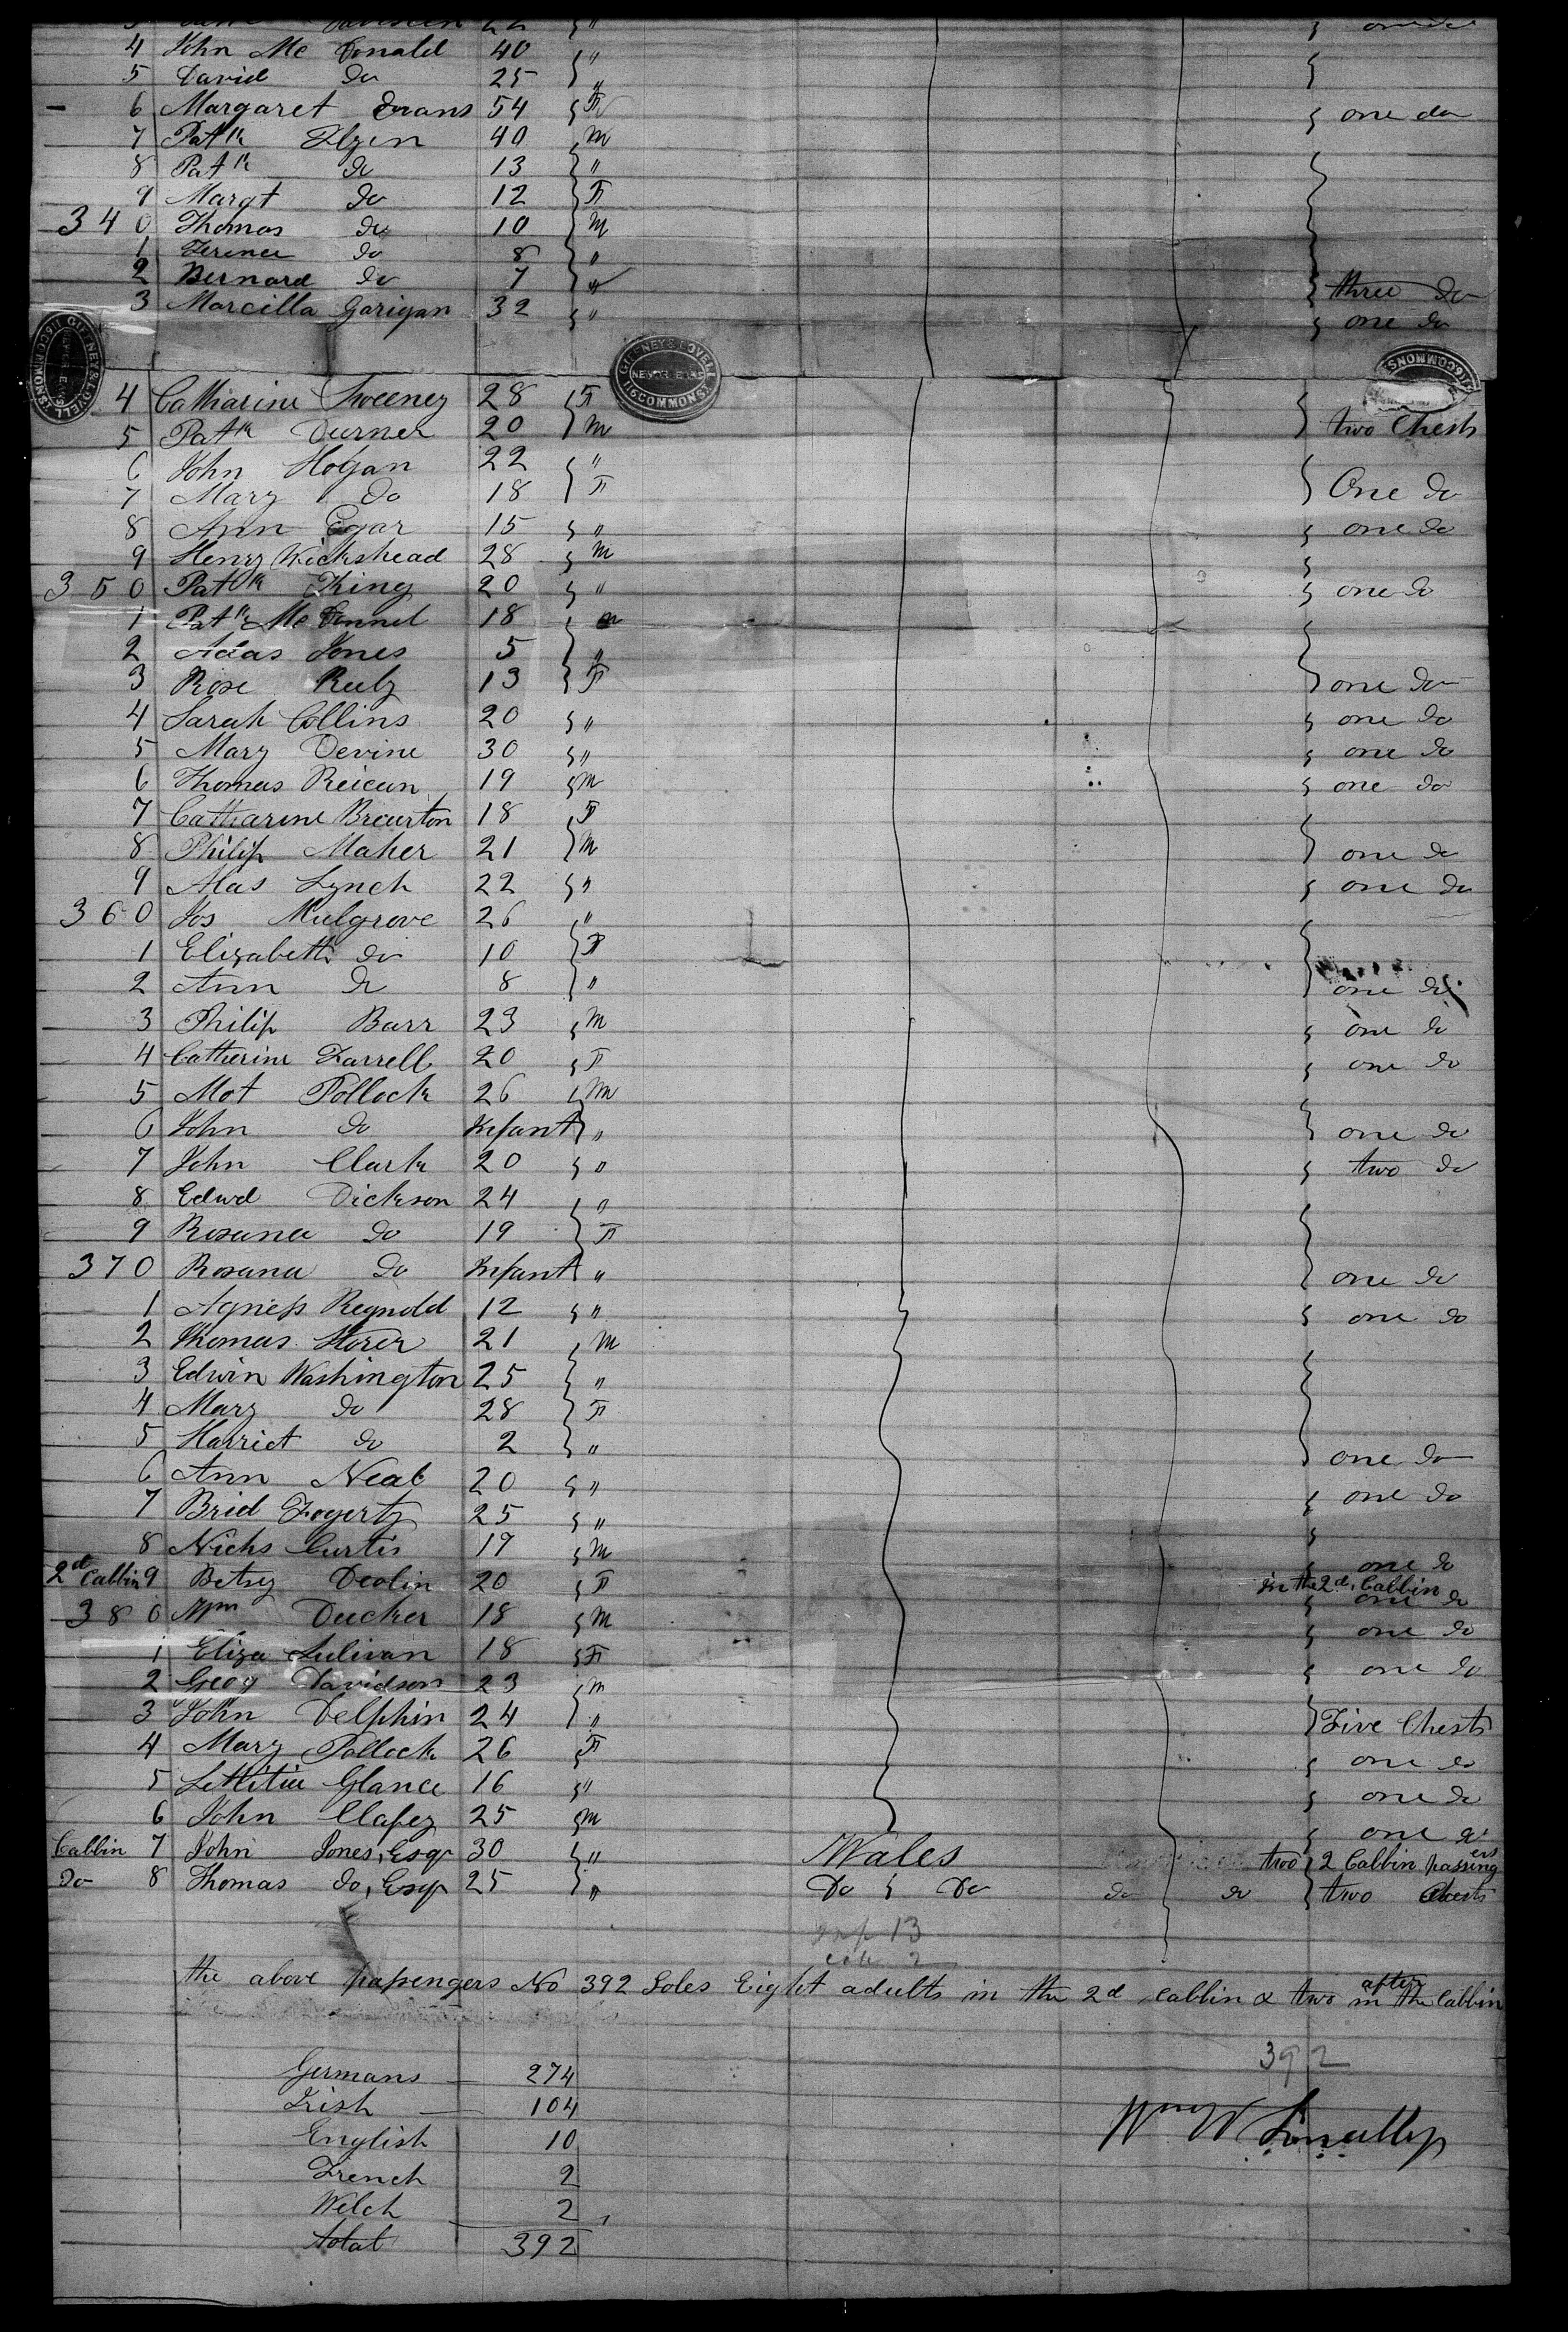 4 John Mc Donald 40 "
5 David do 25 "
6 Margaret Evans 54 F one do
7 Patk Flyn 40 M
8 Patk do 13 "
9 Margt do 12 F
340 Thomas do 10 M
1 Terence do 8 "
2 Bernard do 7 " three do
3 Marcilla Garigan 32 " one do
GUERNEY & LOVELL
116 COMMONS ST
4 Catharine Sweeney 28 F
5 Patk Durner 20 M two Chests
6 John Hogan 22 "
7 Mary do 18 F One do
8 Ann Egar 15 " one do
9 Henry Wickshead 28 M
350 Patk King 20 " one do
1 Patk Mc Connel 18 m
2 Adas Jones 5 "
3 Rose Reely 13 F one do
4 Sarah Collins 20 " one do
5 Mary Devine 30 " one do
6 Thomas Reicun 19 M one do
7 Catharine Breurton 18 F
8 Philip Maher 21 M one do
9 Alas Lynch 22 " one do
360 Jos Mulgrove 26 "
1 Elizabeth do 10 F
2 Ann do 8 " one do
3 Philip Barr 23 M one do
4 Catherine Farrell 20 F one do
5 Mot Pollock 26 M
6 John do Infant " one do
7 John Clark 20 " two do
8 Edwd Dickson 24 "
9 Rosanna do 19 F
370 Rosana do Infant " one do
1 Agness Reynold 12 " one do
2 Thomas Storer 21 M
3 Edwin Washington 25 "
4 Mary do 28 F
5 Harriet do 2 " one do
6 Ann Neal 20 " one do
7 Brid Fogerty 25 "
8 Nichs Curtis 19 M one do
2d Cabbin 9 Betsy Deolin 20 F in the 2d Cabbin one do
380 Wm Ducker 18 M one do
1 Eliza Sulivan 18 F one do
2 Geog Davidson 23 M
3 John Delphin 24 " Five Chests
4 Mary Pollock 26 F one do
5 Lettitia Glance 16 " one do
6 John Clafey 25 M one do
Cabbin 7 John Jones, Esqr 30 " Wales two 2 Cabbin passingers
Do 8 Thomas do, Esqr 25 " Do Do do do two Chests
13
the above passengers No 392 Soles Eight adults in the 2d cabbin & two in the after Cabbin
392
Germans 274
Irish 104
English 10
French 2
Welch 2
total 392
Wm W